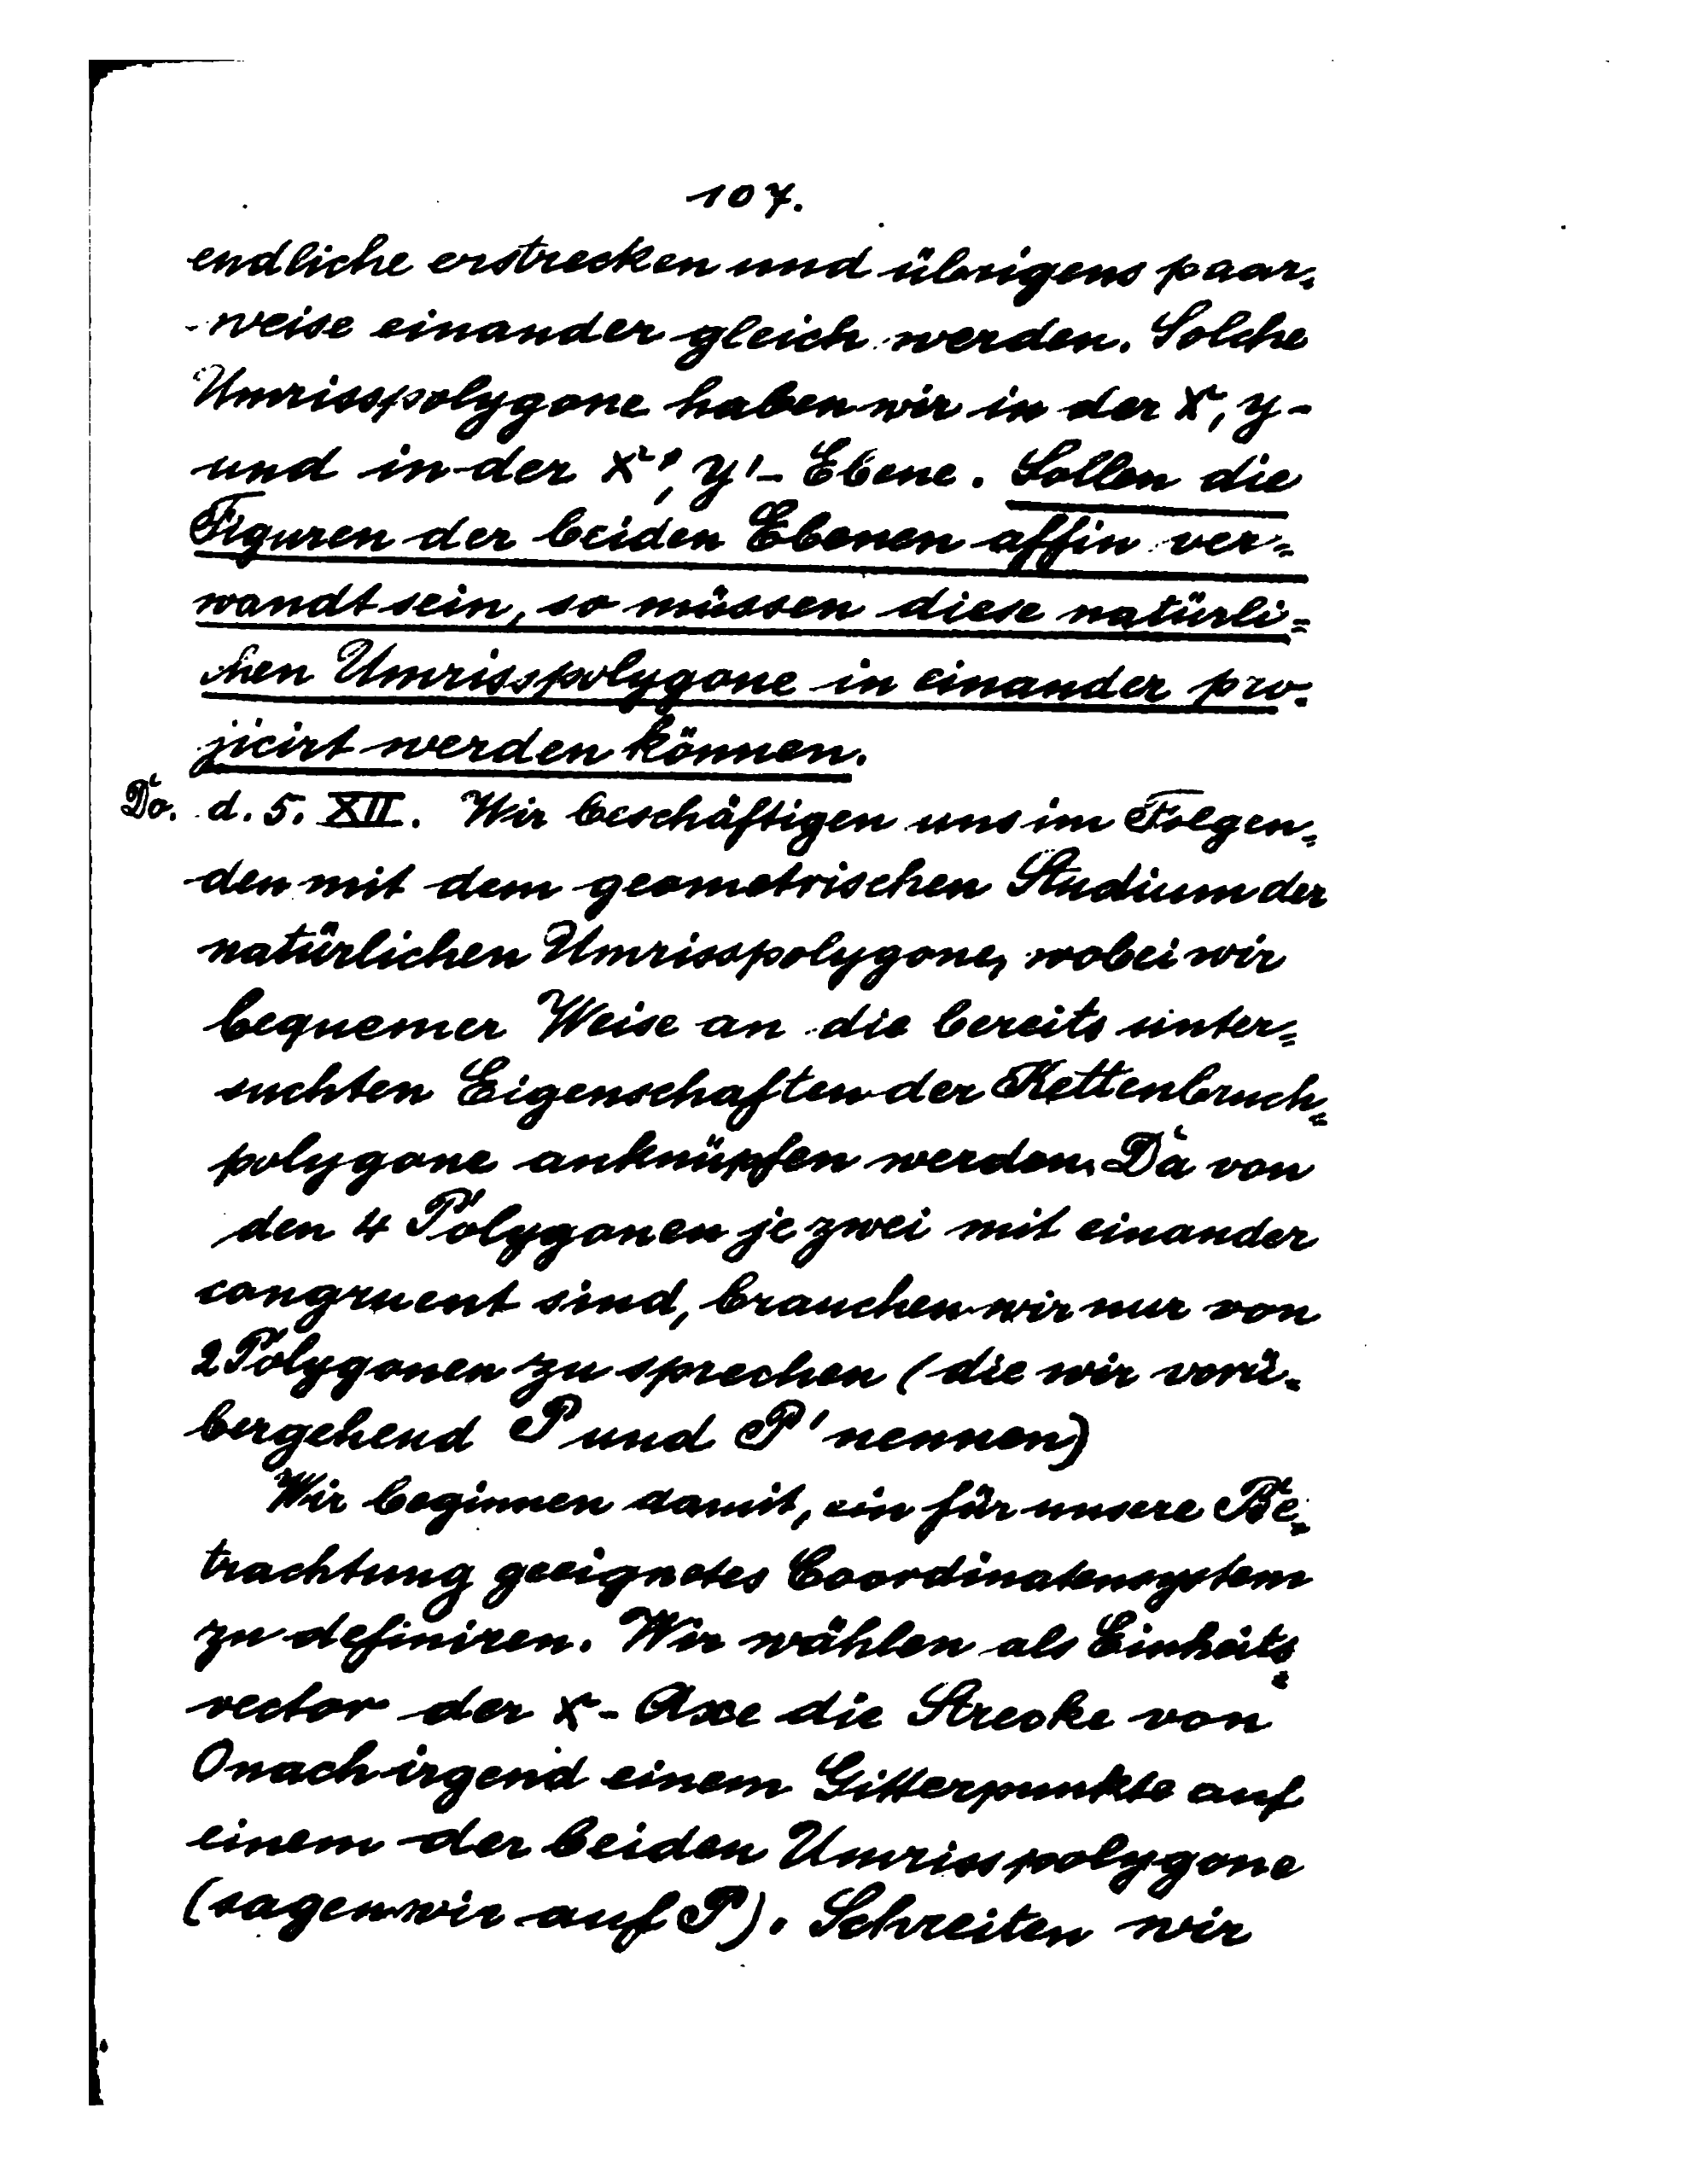 107.
endliche erstrecken und übrigens paar-
weise einander gleich werden. Solche
Umrisspolygone haben wir in der x, y-
und in der x', y'- Ebene. Sollen die
Figuren der beiden Ebenen affin ver-
wandt sein, so müssen diese natürli-
chen Umrisspolygone in einander pro-
jicirt werden können.
Do. d. 5. XII. Wir beschäftigen uns im Folgen-
den mit dem geometrischen Studium der
natürlichen Umrisspolygone, wobei wir
bequemer Weise an die bereits unter-
suchten Eigenschaften der Kettenbruch-
polygone anknüpfen werden. Da von
den 4 Polygonen je zwei mit einander
congruent sind, brauchen wir nur von
2 Polygonen zu sprechen (die wir vorü-
bergehend P und P' nennen)
Wir beginnen damit, ein für unsere Be-
trachtung geeignetes Coordinatensystem
zu definiren. Wir wählen als Einheits-
vector der x- Axe die Strecke von
O nach irgend einem Gitterpunkte auf
einem der beiden Umrisspolygone
(sagen wir auf P). Schreiten wir